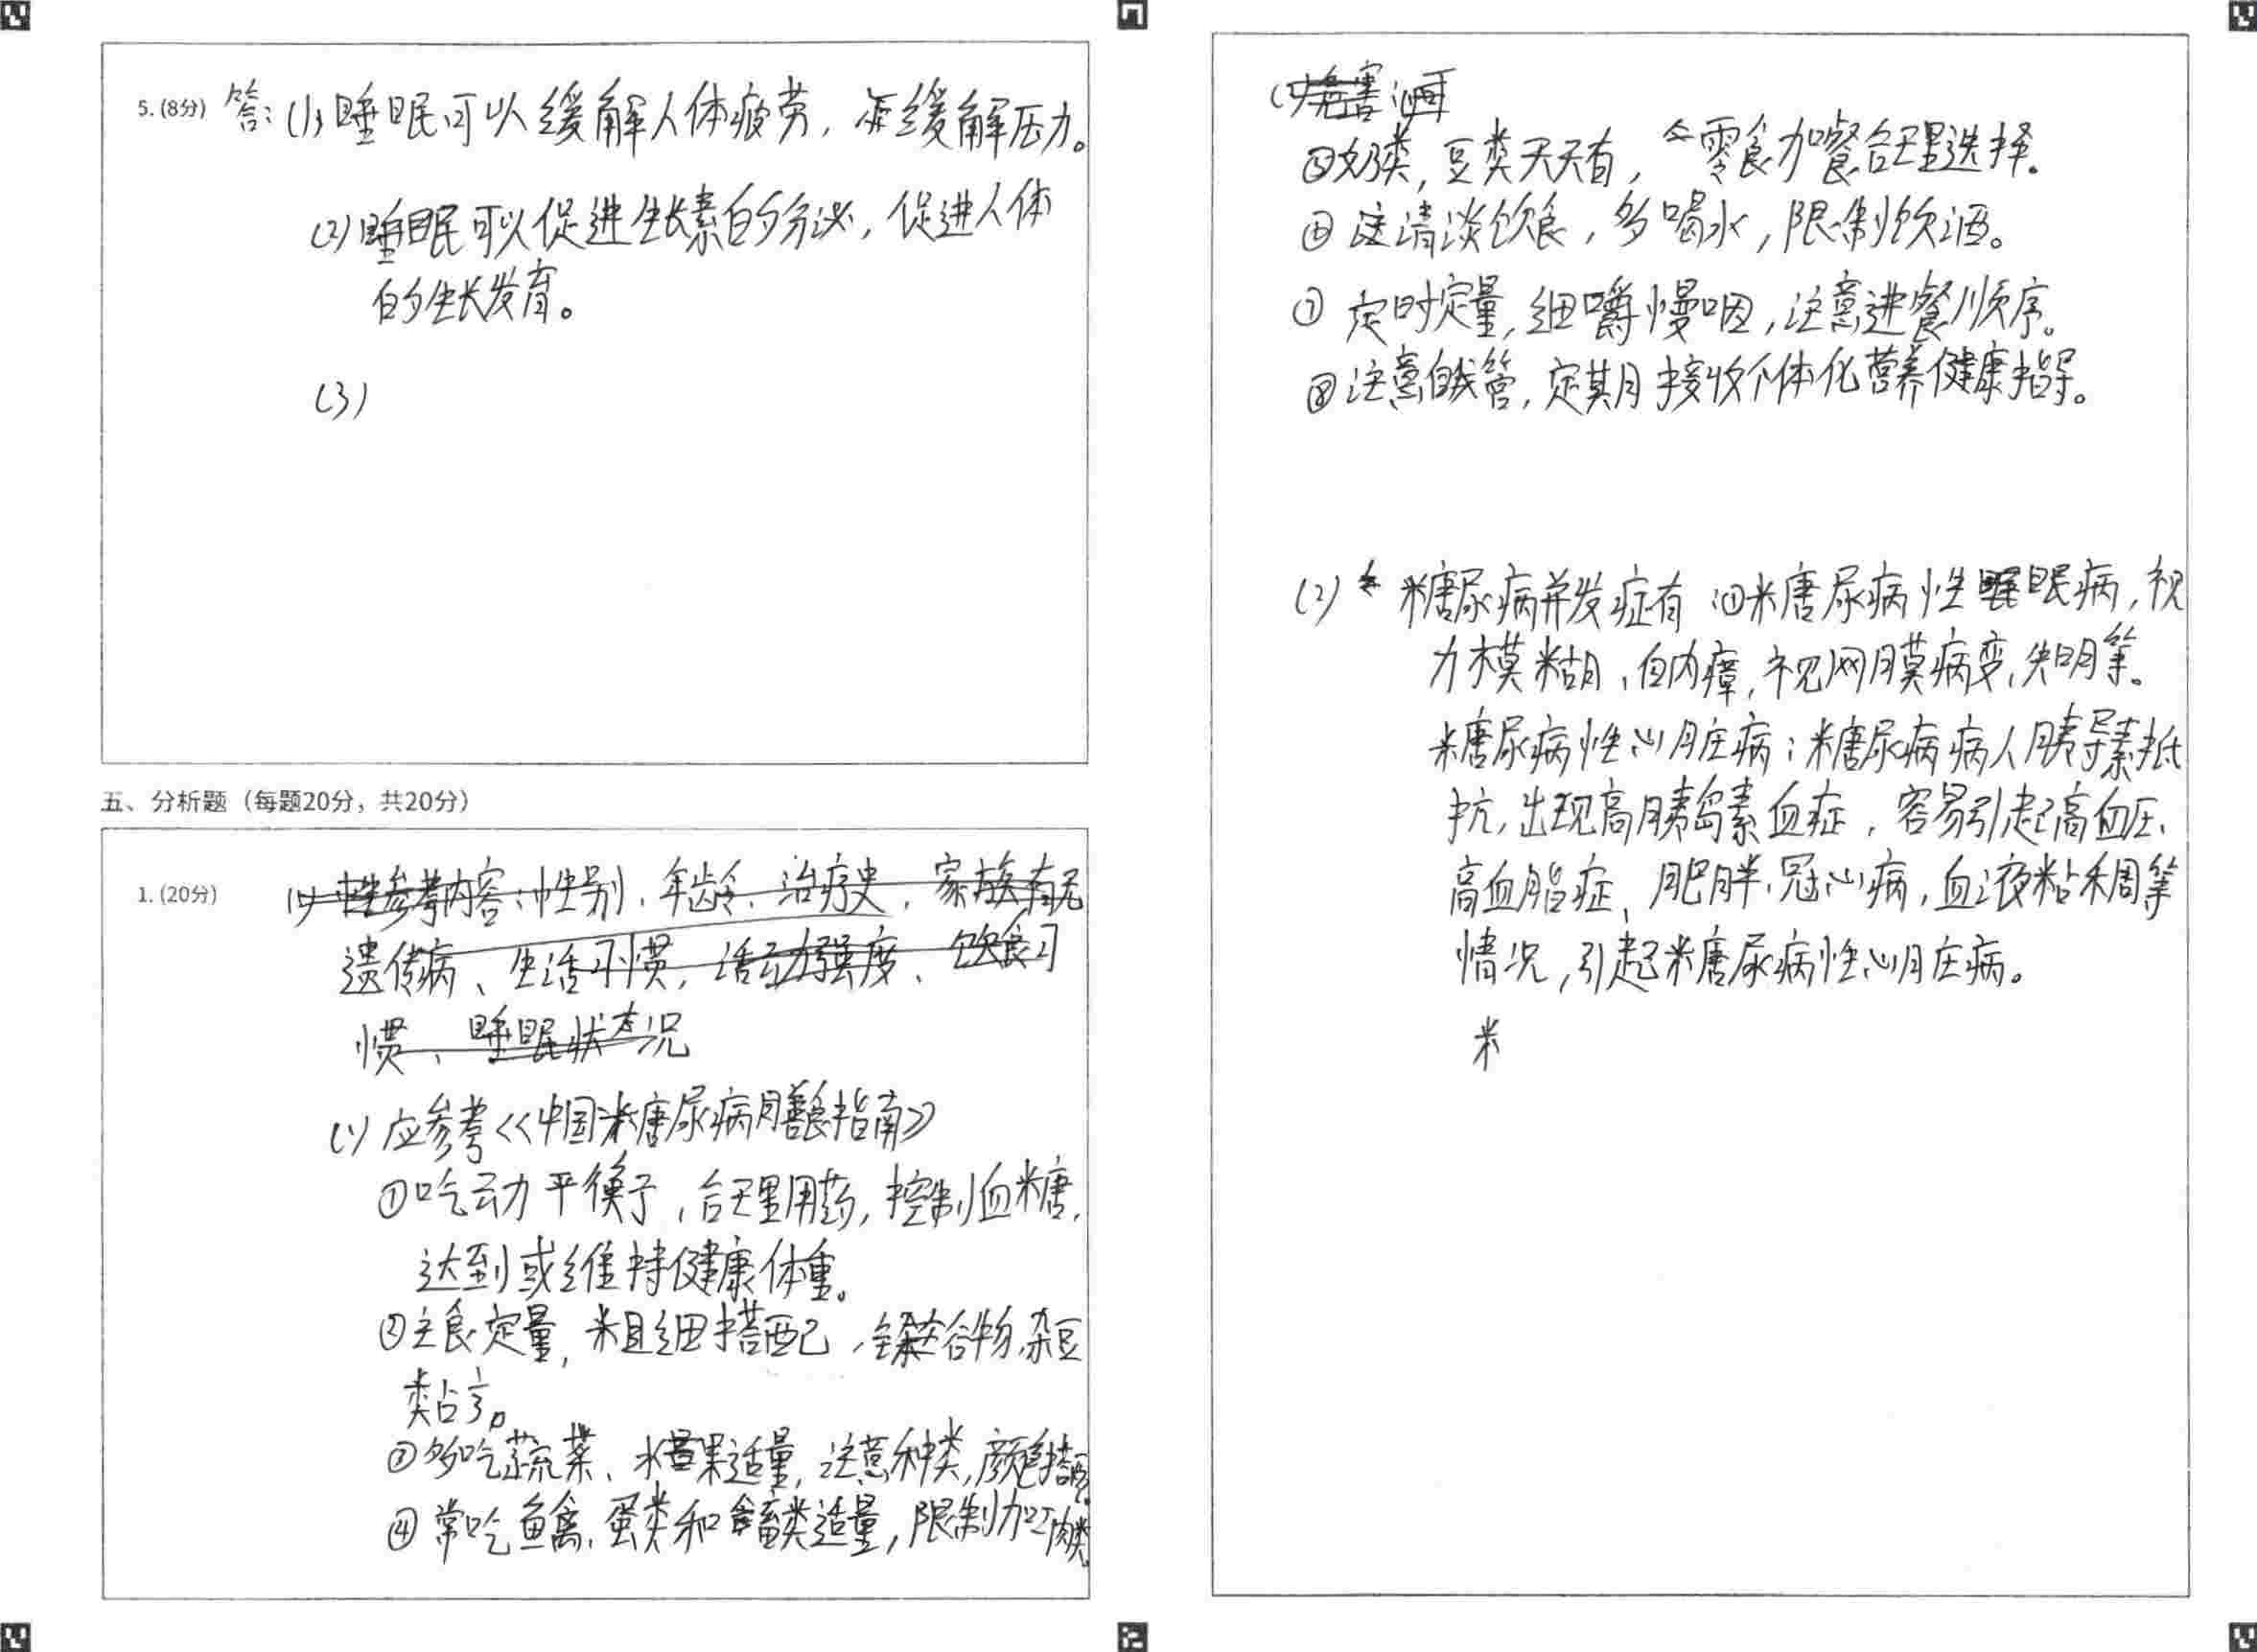 5. (8分) 答：(1) 睡眠可以缓解人体疲劳，缓解压力。
(2) 睡眠可以促进生长素的分泌，促进人体
的生长发育。
(3)
五、分析题（每题20分，共20分）
1. (20分) (1) 参考内容：性别、年龄、治疗史、家族有无
遗传病、生活习惯，活动强度、饮食习
惯、睡眠状态况
(1) 应参考《中国糖尿病膳食指南》
①吃动平衡，合理用药，控制血糖，
达到或维持健康体重。
②主食定量，粗细搭配，全谷物、杂豆
类占⅓。
③多吃蔬菜、水果适量，注意种类，颜色搭配。
④常吃鱼禽、蛋类和畜类适量，限制加工肉类。
(1) 危害：
⑤奶类，豆类天天有，零食加餐合理选择。
⑥清淡饮食，多喝水，限制饮酒。
⑦定时定量，细嚼慢咽，注意进餐顺序。
⑧注意自我管，定期接收个体化营养健康指导。
(2) 糖尿病并发症有：①糖尿病性眼病，视
力模糊、白内瘴，视网膜病变，失明等。
糖尿病性心脏病：糖尿病病人胰岛素抵
抗，出现高胰岛素血症，容易引起高血压、
高血脂症、肥胖、冠心病，血液粘稠等
情况，引起糖尿病性心脏病。
米